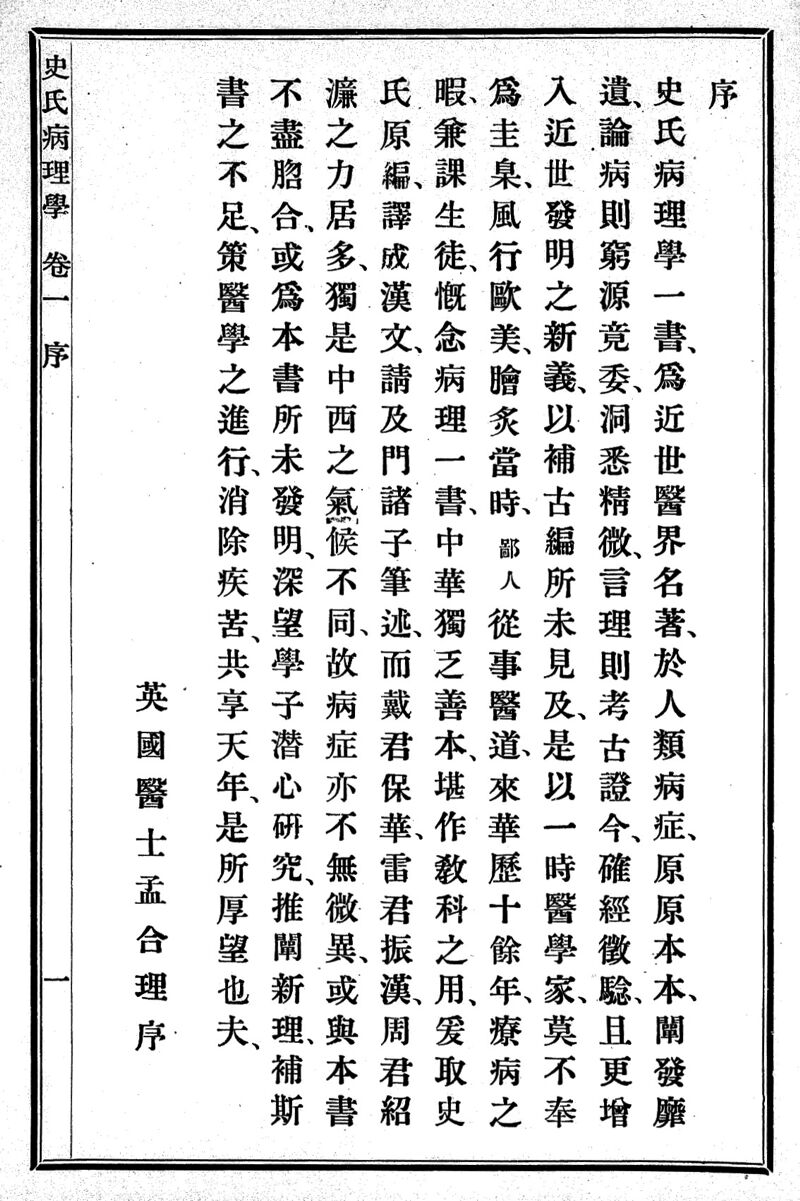 序
史氏病理學一書、爲近世醫界名著、於人類病症、原原本本、闡發靡
遺、論病則窮源竟委、洞悉精微、言理則考古證今、確經徵驗、且更增
入近世發明之新義、以補古編所未見及、是以一時醫學家、莫不奉
爲圭臬、風行歐美、膾炙當時、鄙人從事醫道、來華歷十餘年、療病之
暇、兼課生徒、慨念病理一書、中華獨乏善本、堪作敎科之用、爰取史
氏原編、譯成漢文、請及門諸子筆述、而戴君保華、雷君振漢、周君紹
濂之力居多、獨是中西之氣候不同、故病症亦不無微異、或與本書
不盡脗合、或爲本書所未發明、深望學子潛心研究、推闡新理、補斯
書之不足、策醫學之進行、消除疾苦、共享天年、是所厚望也夫、
英國醫士孟合理序
史氏病理學 卷一 序 一